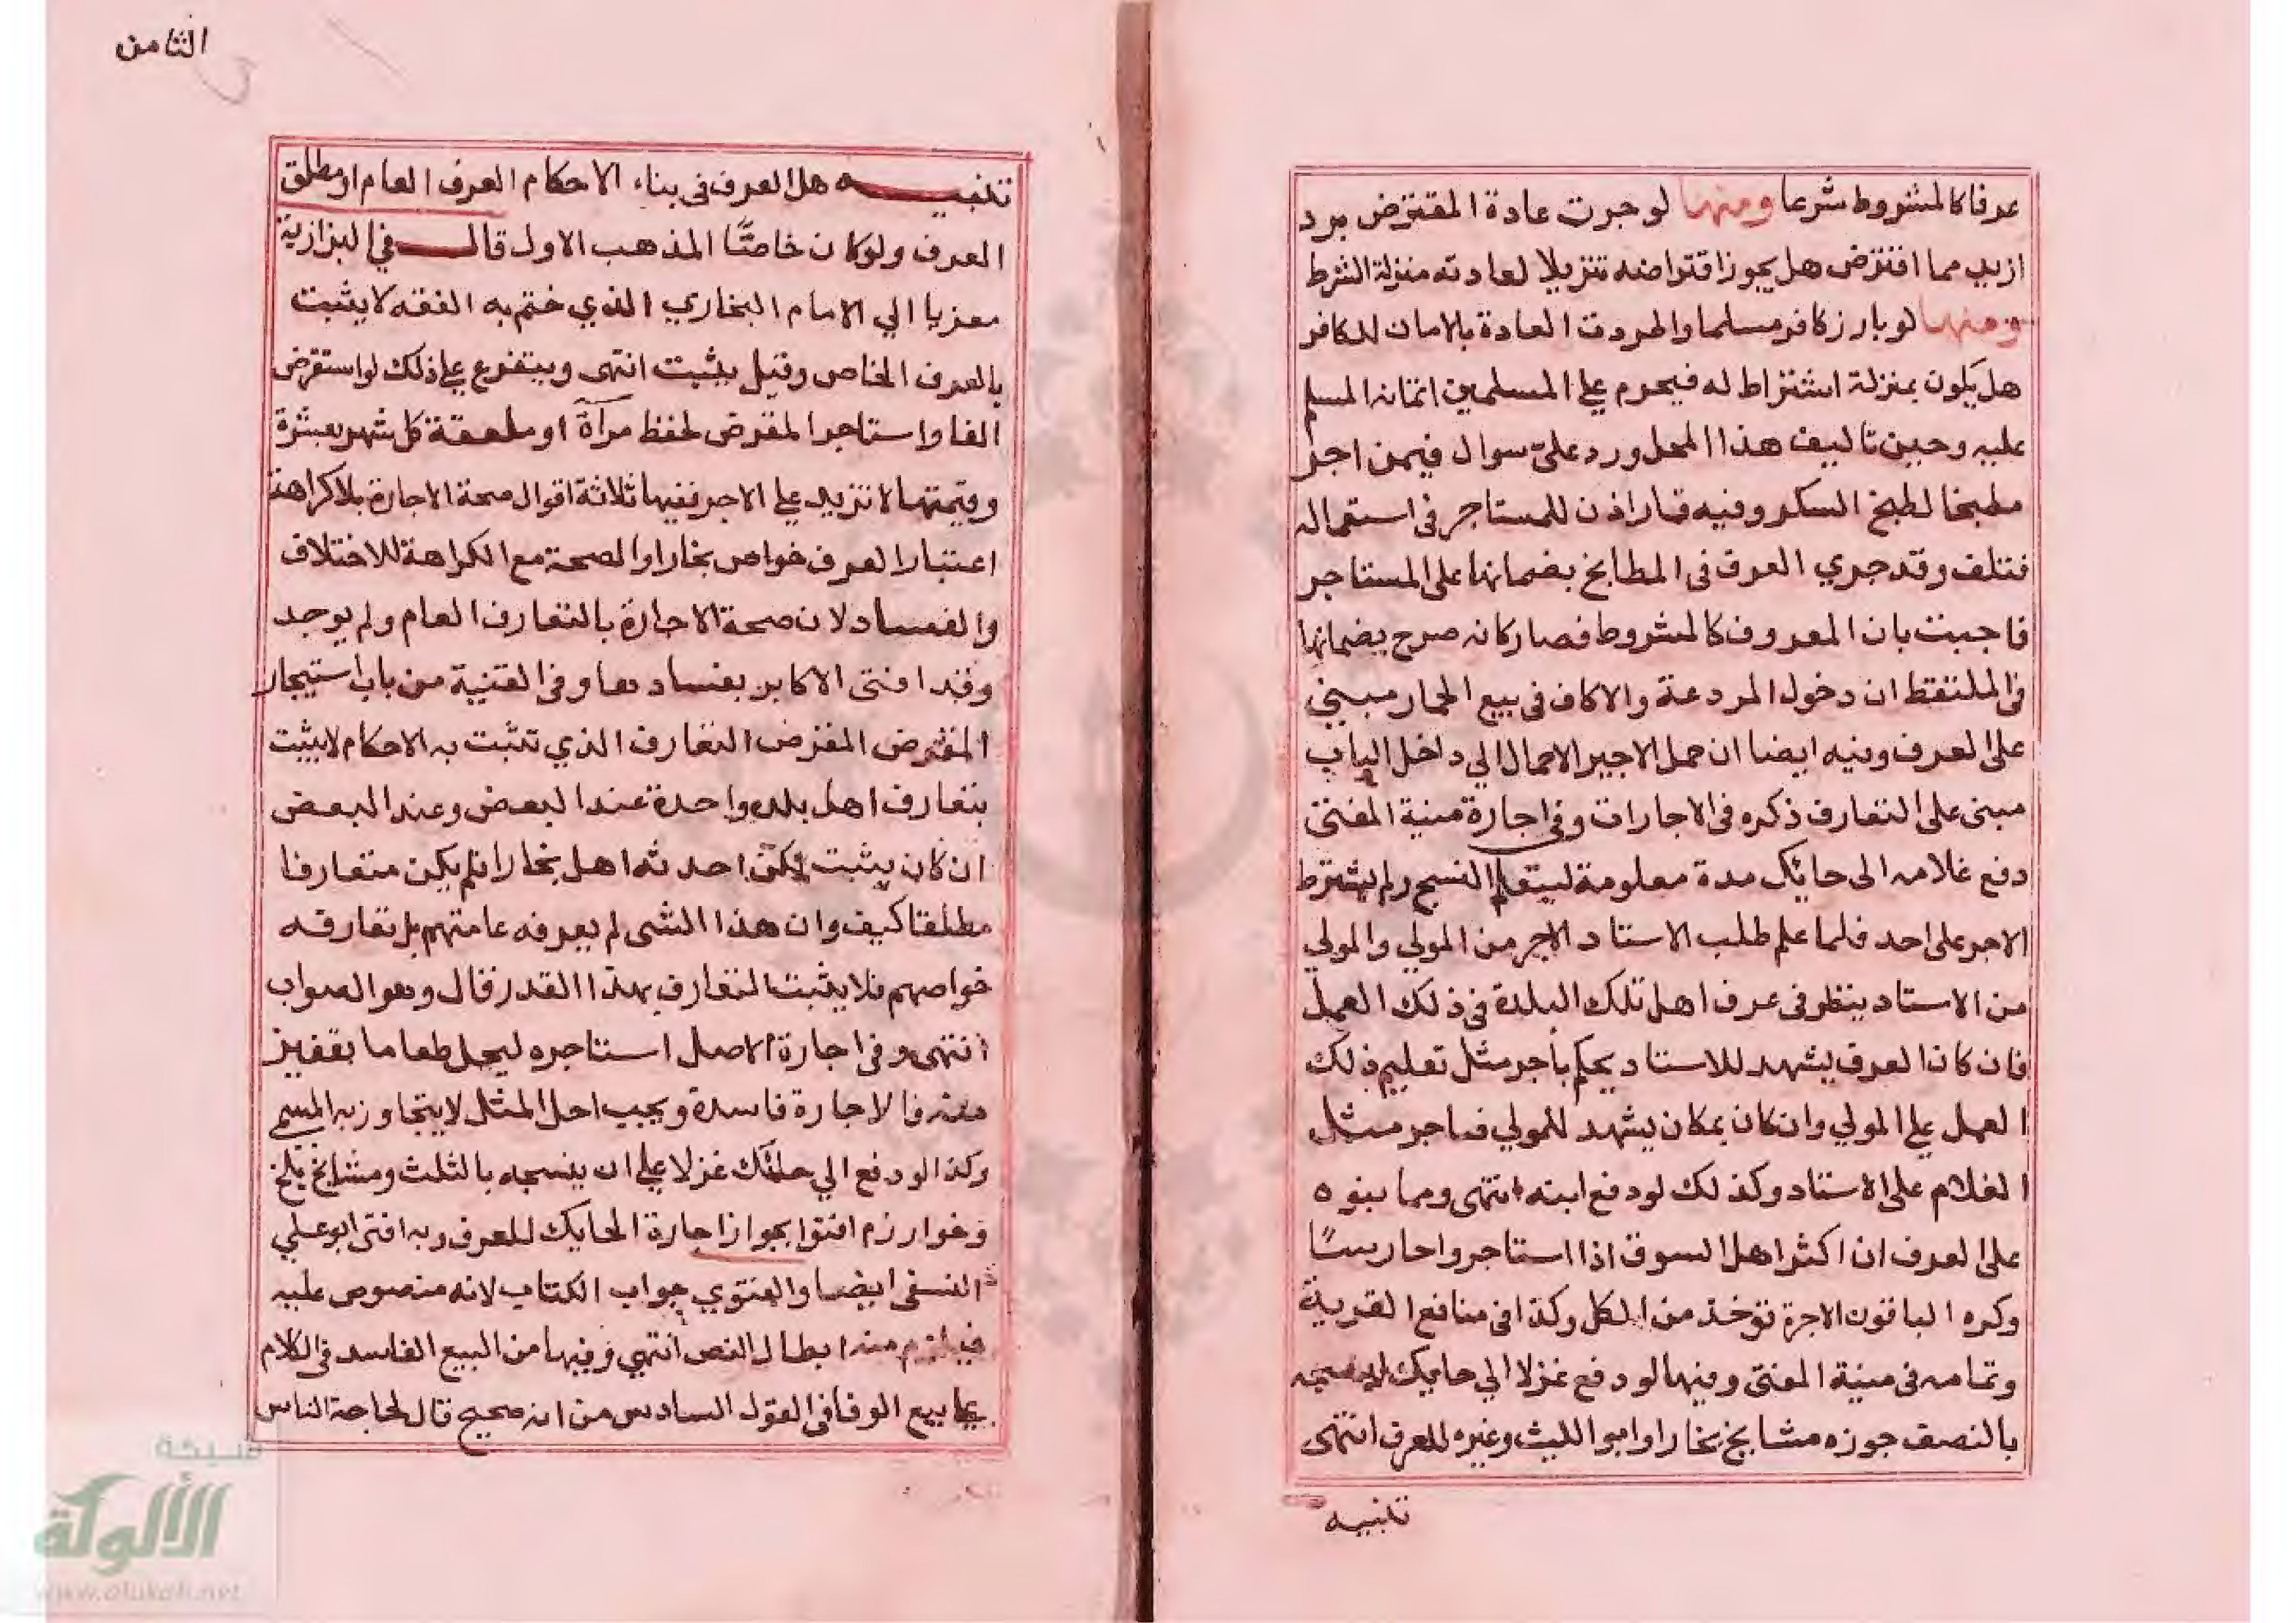 عرفا كالمشروط شرعا ومنها لو جرت عادة المقترض برد
ازيد مما اقترض هل يجوز اقتراضه تنزيلا لعادته منزلة الشرط
ومنها لو بارز كافر مسلما واطردت العادة بالامان للكافر
هل يكون بمنزلة اشتراط له فيحرم علي المسلمين اعانة المسلم
عليه وحين تاليف هذا المحل ورد علىّ سوال فيمن اجر
مطبخا لطبخ السكر وفيه فخار اذن للمستاجر في استعماله
فتلف وقد جري العرف في المطابخ بضمانها على المستاجر
فاجبت بان المعروف كالمشروط فصار كانه صرح بضمانها
في الملتقط ان دخول المردعة والاكاف في بيع الحمار مبني
على العرف وفيه ايضا ان حمل الاجير الاحمال الي داخل الباب
مبنى على التعارف ذكره في الاجارات وفي اجارة منية المفتى
دفع غلامه الى حايك مدة معلومة ليتعلم النسج ولم يشترط
الاجر على احد فلما علم طلب الاستاد الاجر من المولي والمولي
من الاستاد ينظر في عرف اهل تلك البلدة في ذلك العمل
فان كان العرف يشهد للاستاد يحكم بأجر مثل تعليم ذلك
العمل علي المولي وان كان بمكان يشهد للمولي فباجر مثل
الغلام على الاستاد وكذلك لو دفع ابنه انتهى ومما بنوه
على العرف ان اكثر اهل السوق اذا استاجروا حارسًا
وكره الباقون الاجرة تؤخذ من الكل وكذا في منافع القرية
وتمامه في منية المفتى وفيها لو دفع غزلا الي حايك لينسجه
بالنصف جوزه مشايخ بخارا وابو الليث وغيره للعرف انتهى
تنبيه
الثامن
تنبيه هل العرف في بناء الاحكام العرف العام او مطلق
العرف ولو كان خاصًّا المذهب الاول قال في البزازية
معزيا الي الامام البخاري الذي ختم به الفقه لا يثبت
بالعرف الخاص وقيل يثبت انتهى ويتفرع علي ذلك لو استقرض
الفا واستاجر المقرض لحفظ مرآة او ملعقة كل شهر بعشرة
وقيمتها لا تزيد علي الاجر ففيها ثلاثة اقوال صحة الاجارة بلا كراهة
اعتبارا لعرف خواص بخارا والصحة مع الكراهة للاختلاف
والفساد لان صحة الاجارة بالتعارف العام ولم يوجد
وقد افتى الاكابر بفسادها وفي القنية من باب استيجار
المقترض المقرض التعارف الذي تثبت به الاحكام لا يثبت
بتعارف اهل بلده واحدة عند البعض وعند البعض
ان كان يثبت لكن احدثه اهل بخارا فلم يكن متعارفا
مطلقا كيف وان هذا الشى لم يعرفه عامتهم بل تعارفه
خواصهم فلا يثبت التعارف بهذا القدر قال وهو الصواب
انتهى وفي اجارة الاصل استاجره ليحمل طعاما بقفيز
منه فالاجارة فاسدة ويجب اجل المثل لا يتجاوز به المسمى
وكذا لو دفع الي حائك غزلا علي ان ينسجه بالثلث ومشايخ بلخ
وخوارزم افتوا بجواز اجارة الحايك للعرف وبه افتى ابو علي
النسفى ايضا والفتوي جواب الكتاب لانه منصوص عليه
فيلزم منه ابطال النص انتهي وفيها من البيع الفاسد في الكلام
علي بيع الوفا في القول السادس من انه صحيح قال لحاجة الناس
شبكة
الألوكة
www.alukah.net